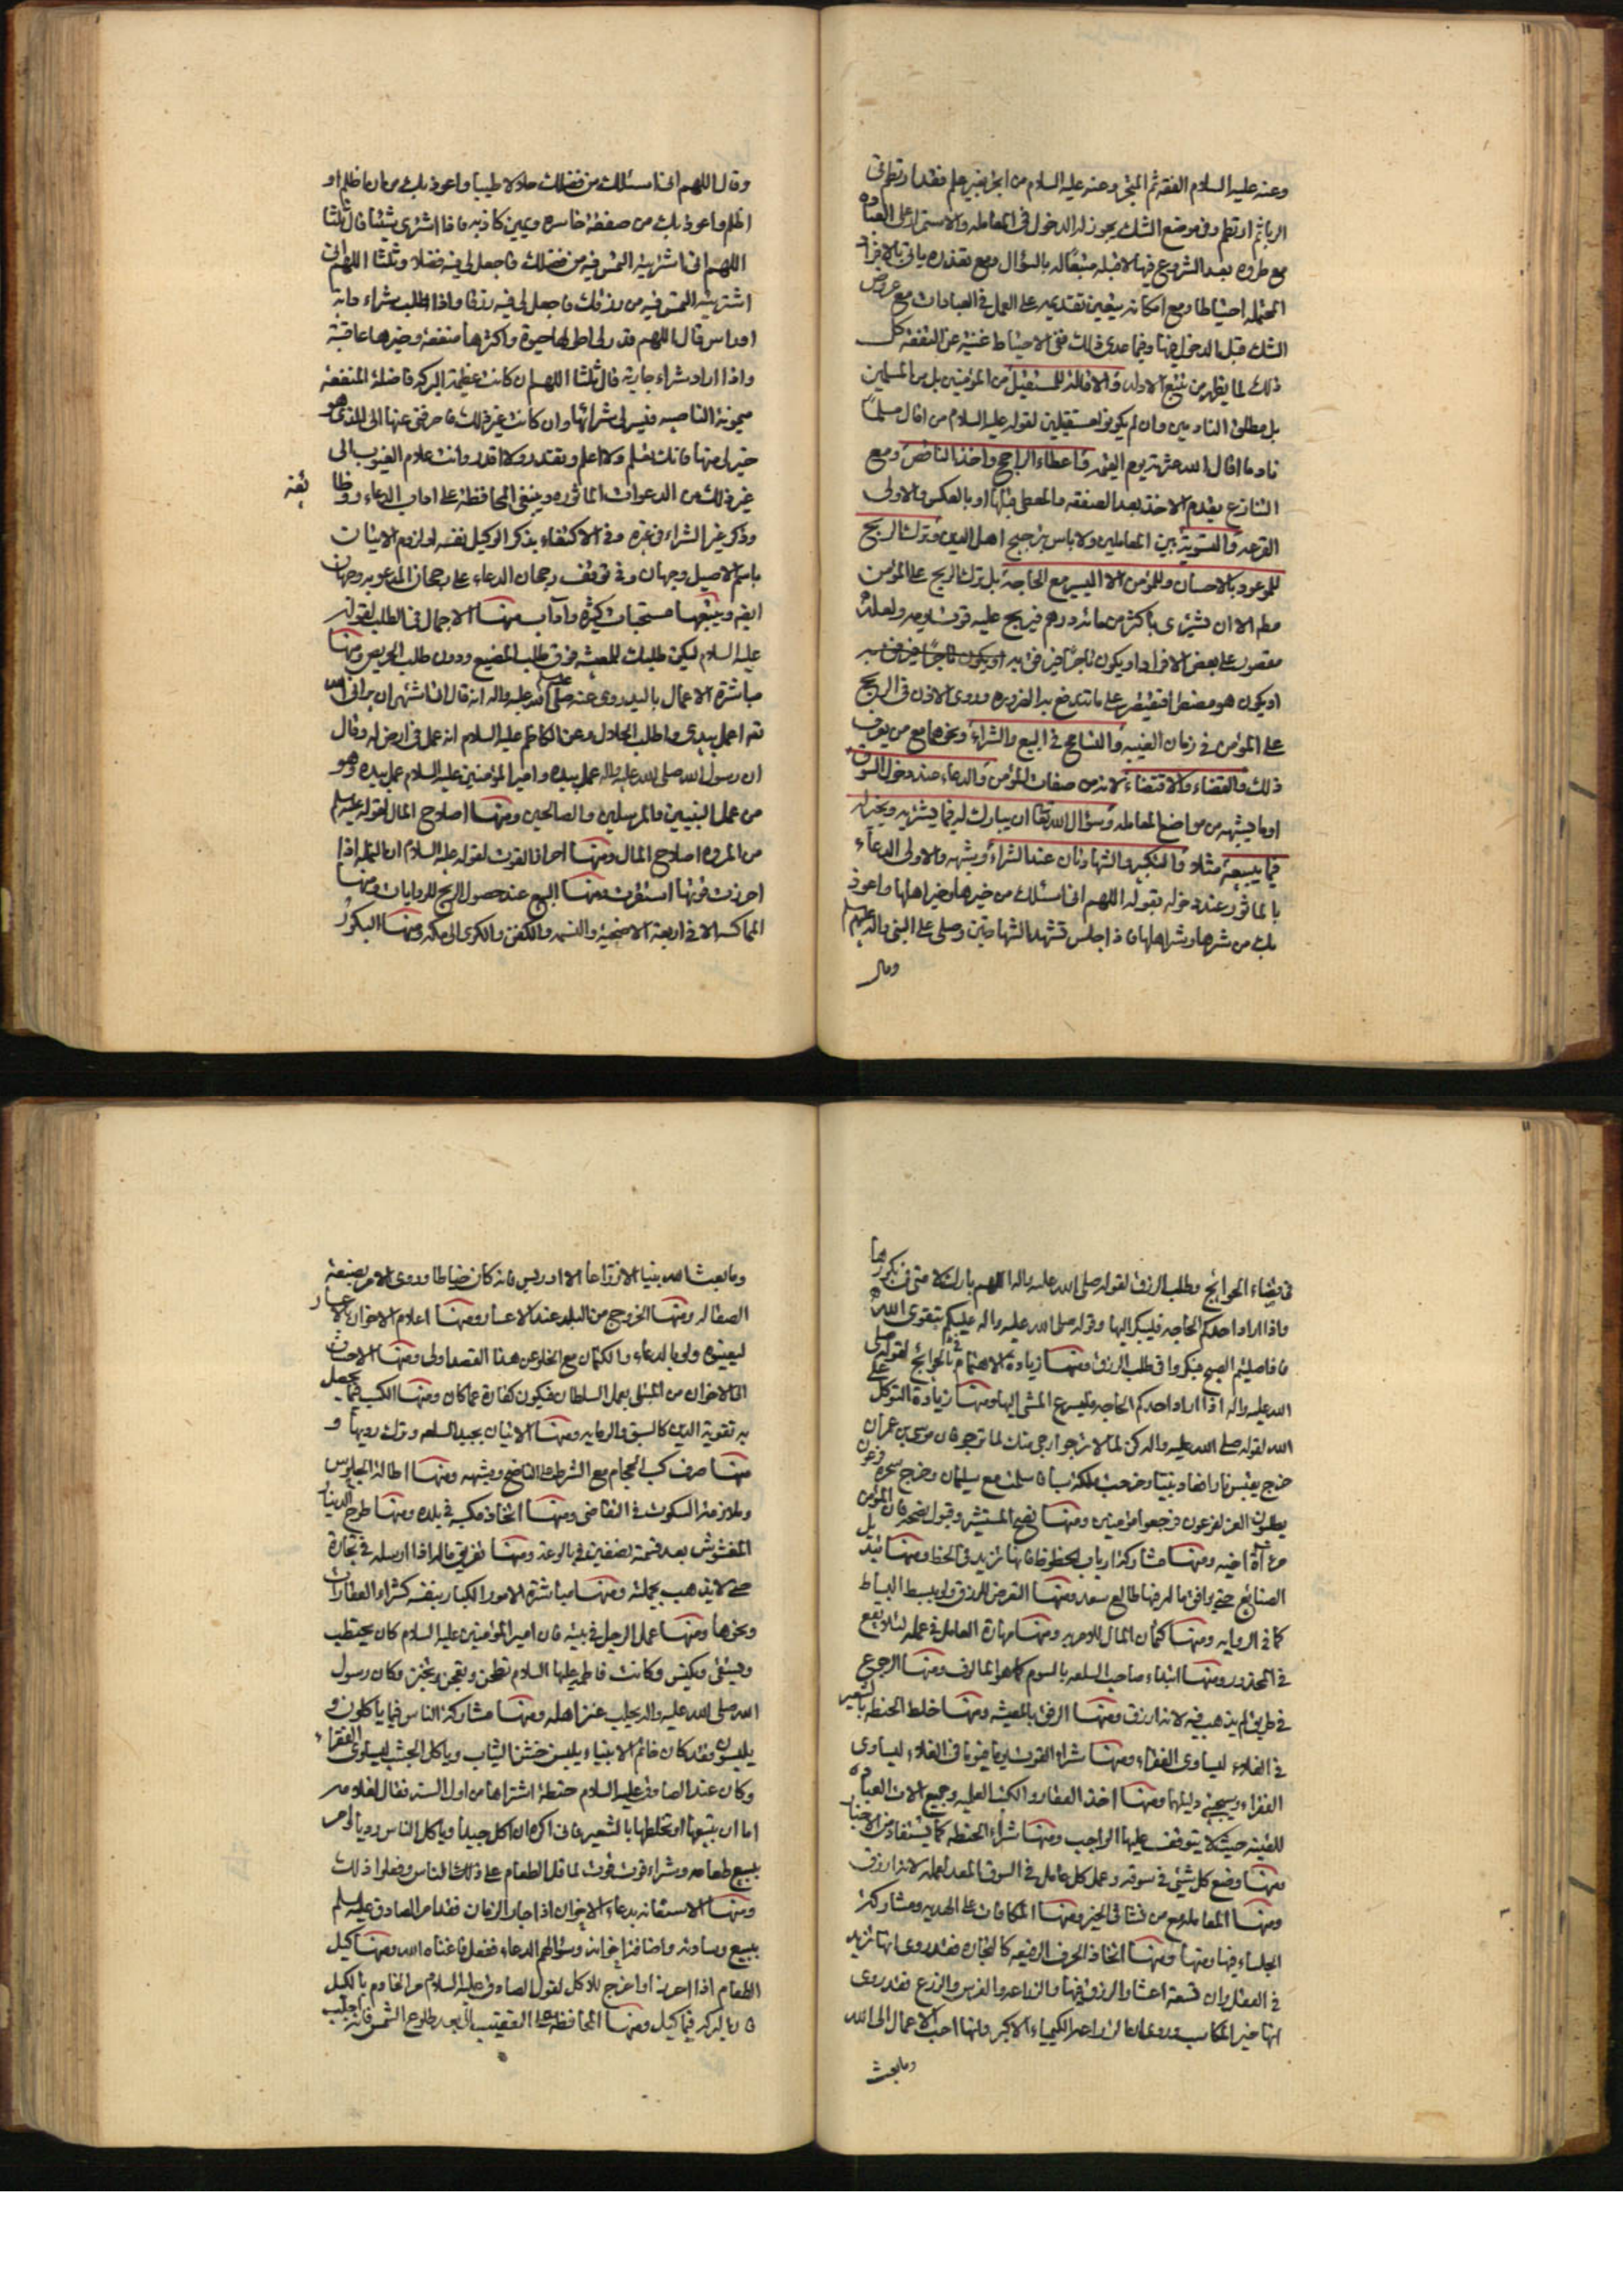 وعنه عليه السلام الفقه ثم المتجر وعنه عليه السلام من اتجر بغير علم فقد ارتطم في
الربا ثم ارتطم وفي موضع الشك يجوز له الدخول في المعاملة والاستمرار على العبادة
مع طروه بعد الشروع فيها لا قبله متبعا له بالسؤال ومع تعذره ياتي بالافراد
المحتملة احتياطا ومع امكانه يتعين تقديمه على العمل في العبادات مع عروض
الشك قبل الدخول فيها وفيما عدى ذلك ففي الاحتياط غنية عن التفقه كل
ذلك لما يظهر من تتبع الادلة والاقالة للمستقيل من المؤمنين بل من المسلمين
بل مطلق النادمين وان لم يكونوا مستقيلين لقوله عليه السلام من اقال مسلما
نادما اقال الله عثرته يوم القيمة واعطاء الراجح واخذ الناقص ومع
التنازع يقدم الاخذ بعد الصفقه والمعطي قبلها او بالعكس والاولى
القرعه والتسوية بين المعاملين ولا باس بترجيح اهل الدين وترك الربح
للموعود بالاحسان وللمؤمن الا اليسير مع الحاجة بل ترك الربح على المؤمن
مطه الا ان يشتري باكثر من مائة درهم فيربح عليه قوت يومه ولعله
مقصور على بعض الافراد او يكون تاجرا فيرفق به او يكون تاجرا فيرفق به
او يكون هو مضطرا فيقتصر على ما تندفع به الضرورة وروى الاذن في الربح
على المؤمن في زمان الغيبه والتسامح في البيع والشراء ونحوهما مع من يعرف
ذلك والقضاء والاقتضاء لانه من صفات المؤمن والدعاء عند دخول السوق
او ما يشبهه من مواضع المعاملة وسؤال الله تعا ان يبارك له فيما يشتريه ويخير له
فيما يبيعه مثلا والتكبير والشهادتان عند الشراء وشبهه والاولى الدعاء
بالماثور عند دخوله بقوله اللهم اني اسئلك من خيرها وخير اهلها واعوذ
بك من شرها وشر اهلها فاذا جلس تشهد الشهادتين وصلى على النبي واله عليهم السلام
وقال
وقال اللهم اني اسئلك من فضلك حلالا طيبا واعوذ بك من ان اظلم او
اظلم واعوذ بك من صفقة خاسرة ويمين كاذبه فاذا اشترى شيئا قال ثلثا
اللهم اني اشتريته التمس فيه من فضلك فاجعل لي فيه فضلا وثلثا اللهم اني
اشتريته التمس فيه من رزقك فاجعل لي فيه رزقا واذا اطلب شراء دابة
او راس قال اللهم قدر لي اطولها حيوة واكثرها منفعة وخيرها عاقبة
واذا اراد شراء جارية قال ثلثا اللهم ان كانت عظيمة البركه فاضلة المنفعة
ميمونة الناصية فيسر لي شرائها وان كانت غير ذلك فاصرفني عنها الى الذي هو
خير لي منها فانك تعلم ولا اعلم وتقدر ولا اقدر وانت علام الغيوب الى
غير ذلك من الدعوات الماثوره وينبغي المحافظة على اداب الدعاء ووظا
ئفه
وذكر غير الشراء في غيره وفي الاكتفاء بذكر الوكيل نفسه او لزوم الاتيان
باسم الاصيل وجهان وفي توقف رجحان الدعاء على رجحان المدعو به وجهان
ايضه ويتبعها مستحبات كثيرة واداب منها الاجمال في الطلب لقوله
عليه السلام ليكن طلبك للمعيشه فوق طلب المضيع ودون طلب الحريص ومنها
مباشرة الاعمال باليد روى عنه صلى الله عليه واله انه قال اني اشتهي ان يراني الله
تعه اعمل بيدي واطلب الحلال وعن الكاظم عليه السلام انه عمل في ارض له وقال
ان رسول الله صلى الله عليه واله عمل بيده وامير المؤمنين عليه السلام عمل بيده وهو
من عمل النبيين والمرسلين والصالحين ومنها اصلاح المال لقوله عليه السلام
من المروه اصلاح المال ومنها احراز القوت لقوله عليه السلام ان النفس اذا
احرزت قوتها استقرت ومنها البيع عند حصول الربح للروايات ومنها
المماكسه الا في اربعة الاضحية والنسمه والكفن والكرى الى مكه ومنها البكور
في قضاء الحوائج وطلب الرزق لقوله صلى الله عليه واله اللهم بارك لامتي في بكورها
واذا اراد احدكم الحاجه فليبكر اليها وقوله صلى الله عليه واله عليكم بتقوى الله
فاذا صليتم الصبح فبكروا في طلب الرزق ومنها زيادة الاهتمام في الحوائج لقوله صلى
الله عليه واله اذا اراد احدكم الحاجه فليسرع المشي اليها ومنها زيادة التوكل على
الله لقوله صلى الله عليه واله كن لما لا ترجو ارجى منك لما ترجو فان موسى بن عمران
خرج يقتبس نارا فعاد نبيا وخرجت ملكة سبا فاسلمت مع سليمان وخرج سحرة فرعون
يطلبون العز لفرعون فرجعوا مؤمنين ومنها نصح المستشير وقبول نصحه فان المؤمن
مرآة اخيه ومنها مشاركة ارباب الحظوظ فانها تزيد في الحظ ومنها تبديل
الصنائع حتى يوافق ما له فيها طالع سعد ومنها التعرض للرزق ولو ببسط البساط
كما في الروايه ومنها كتمان المال ومنها مهارة العامل في عمله لئلا يقع
في المحذور ومنها ابتداء صاحب السلعه بالسوم كما هو المالوف ومنها الرجوع
في طريق لم يذهب فيه لانه ارزق ومنها الرفق بالمعيشه ومنها خلط الحنطه بالشعير
في الغلاء ليساوي الفقراء ومنها شراء القوت يوما فيوما في الغلاء ليساوي
الفقراء ومنها اخذ العقار والكتب العلميه وجميع الات العباده
للقنية حيث لا يتوقف عليها الواجب ومنها شراء الحنطه كما يستفاد من الاخبار
ومنها وضع كل شيئ في سوقه وعمل كل عامل في السوق المعد لعمله لانه ارزق
ومنها المعامله مع من نشا في الخير ومنها المكافات على الهديه ومشاركة
الجلساء فيها ومنها اتخاذ الحرف الرفيعه كالتجاره فقد روى انها تزيد
في العقل وان تسعة اعشار الرزق فيها والزراعه والغرس والزرع فقد روى
انها خير المكاسب وروى ان الزراعه الكيمياء الاكبر وانها احب الاعمال الى الله
وما بعث
وما بعث الله نبيا الا زراعا الا ادريس فانه كان خياطا وروى الامر بصنعة
الصقاله ومنها الخروج من البلد عند الاعسار ومنها اعلام الاخوان بالاعسار
ليعينوه ولو بالدعاء والكتمان مع الخلو عن هذا القصد اولى ومنها الاحسان
الى الاخوان من المبتلى بعمل السلطان فيكون كفارة عما كان ومنها الكسب فيما يحصل
به تقوية الدين كالسبق والرمايه ومنها الاتيان بجيد السلعه وترك رديها و
منها صرف كسب الحجام مع الشرط على الناضح وشبهه ومنها اطالة الجلوس
وملازمة السكوت في التقاضي ومنها اتخاذ مكسبه في بلده ومنها طرح الدينار
المغشوش بعد قسمته نصفين في بالوعة ومنها تفريق ماله اذا ارسله في تجارة
حتى لا يذهب بجملته ومنها مباشرة الامور الكبار بنفسه كشراء العقارات
ونحوها ومنها عمل الرجل في بيته فان امير المؤمنين عليه السلام كان يحتطب
ويستقي ويكنس وكانت فاطمه عليها السلام تطحن وتعجن وتخبز وكان رسول
الله صلى الله عليه واله يحلب عنز اهله ومنها مشاركة الناس فيما ياكلون و
يلبسون وقد كان خاتم الانبياء يلبس خشن الثياب وياكل الجشب ليساوي الفقراء
وكان عند الصادق عليه السلام حنطة اشتراها من اول السنه فقال لغلامه
اما ان تبيعها او تخلطها بالشعير فاني اكره ان اكل جيدا وياكل الناس رديا وامر
ببيع طعامه وشراء قوت فقوت لما قل الطعام على ذلك الناس وفعلوا ذلك
ومنها الاستعانه بدعاء الاخوان اذا جار الزمان فقد امر الصادق عليه السلام
ببيع وسادته واضافة اخوانه وسؤالهم الدعاء ففعل فاغناه الله ومنها كيل
الطعام اذا احرزه او اخرج للاكل لقول الصادق عليه السلام مر الخادم بالكيل
فان البركه فيما كيل ومنها المحافظة على التعقيب الى بعد طلوع الشمس فانه اجلب